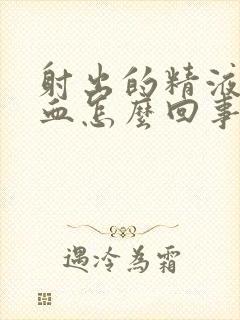 射出的精液
血怎麼回事
遇冷為霜